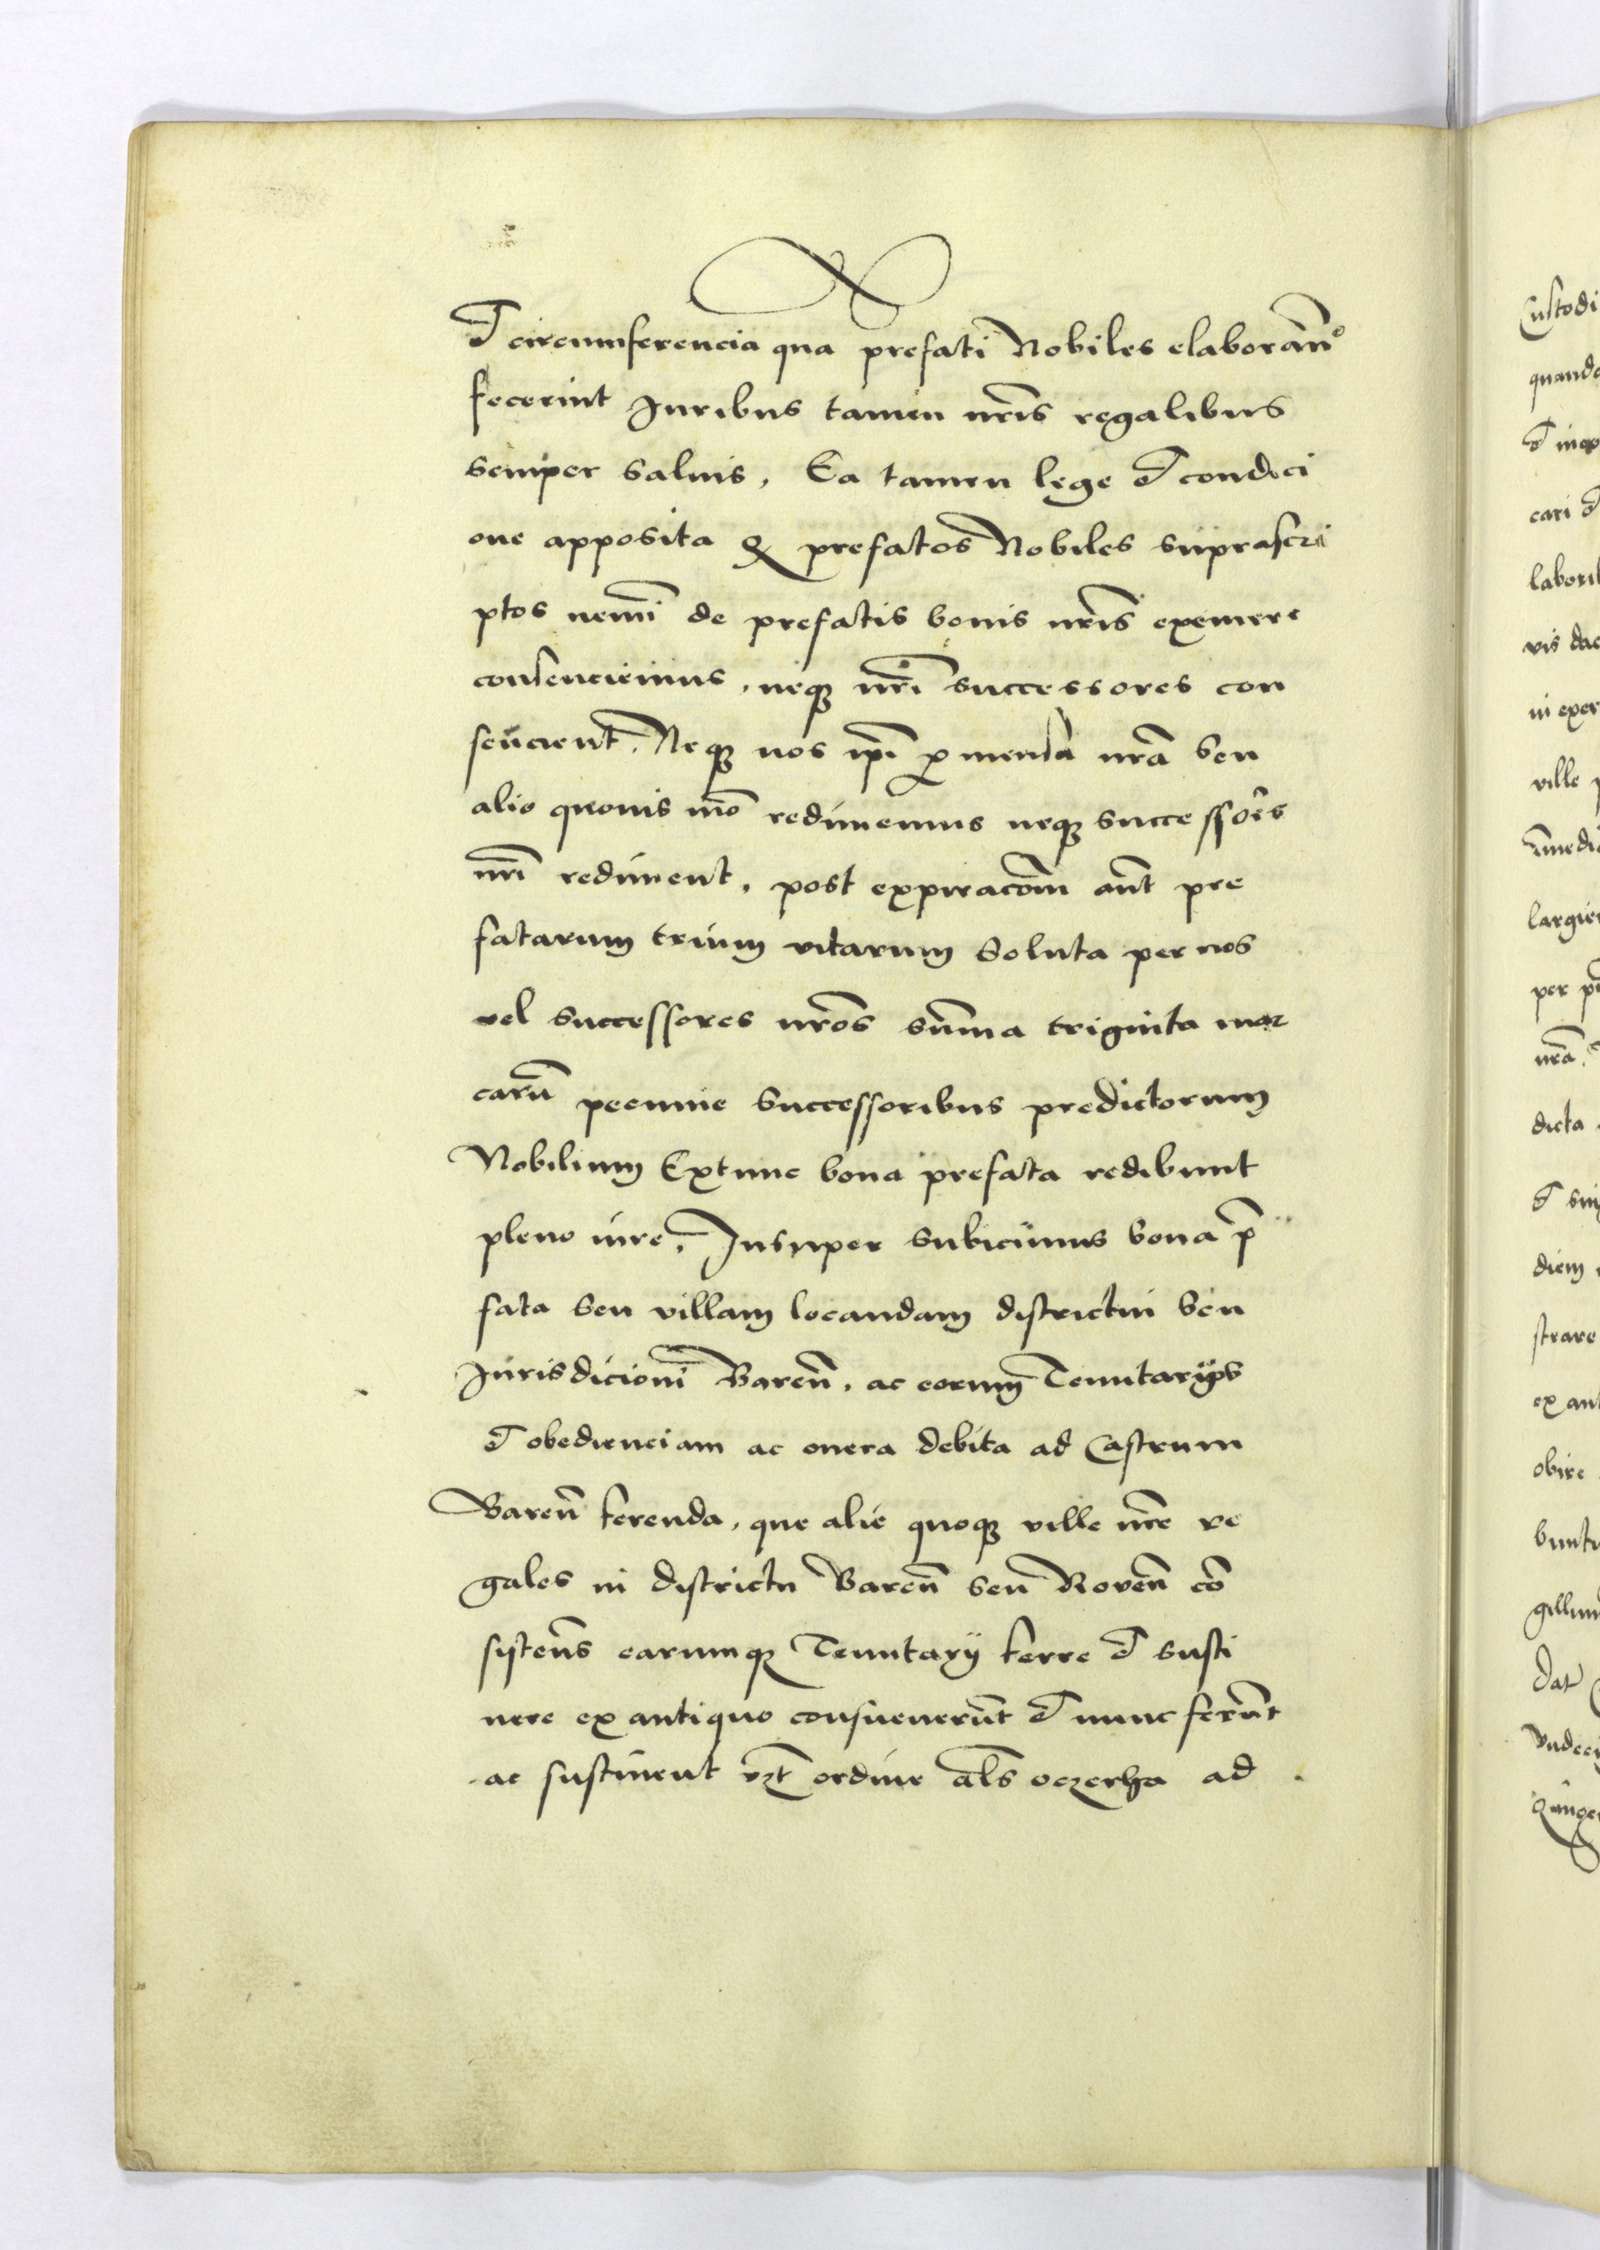 et circumferencia qua prefati Nobiles elaborãñ
fecerint Iuribus tamen nr̃is regalibus
semper saluis, Ea tamen lege et condici
one apposita ꝙ prefatos Nobiles suprascri
ptos nemĩ de prefatis bonis nr̃is eximere
consenciemus, neqꝫ nr̃i successores con
sencient. Neqꝫ nos ip̃i ꝓ mensa nr̃a seu
alio quouis mõ redimemus neqꝫ successor̃es
nr̃i rediment, post expiracõm aũt pre
fatarum trium vitarum soluta per nos
vel successores nr̃os sum̃a triginta mar
carũ pecunie successoribus predictorum
Nobilium Extunc bona prefata redibunt
pleno iure, Insuper subicimus bona p̃
fata seu villam locandam districtui seu
Iurisdicioni Bareñ. ac eorum Tenutarijs
et obedienciam ac onera debita ad Castrum
Bareñ ferenda, que alie quoqꝫ ville nr̃e re
gales in districtu Bareñ seu Roveñ cõ
sisteñs earumqꝫ Tenutarij ferre et susti
nere ex antiquo consueuerũt et nunc ferũt
ac sustinent vꝫt ordine al̃s oczerha ad